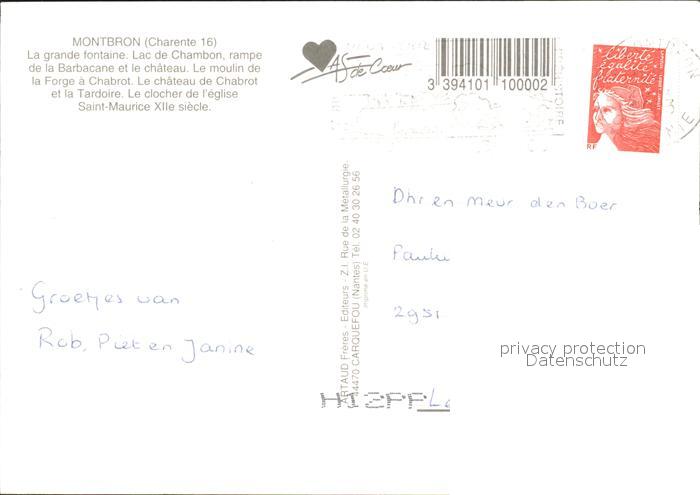 MONTBRON (Charente 16)
La grande fontaine. Lac de Chambon, rampe
de la Barbacane et le château. Le moulin de
la Forge à Chabrot. Le château de Chabrot
et la Tardoire. Le clocher de l'église
Saint-Maurice XIIe siècle.
AS de Cœur
3 394101 100002
liberté
égalité
fraternité
RF
ARTAUD Frères - Editeurs - Z.I. Rue de la Métallurgie.
44470 CARQUEFOU (Nantes) Tél. 02 40 30 26 56
Imprimé en U.E.
Dhr en Meur den Boer
2951
Groetjes van
Rob, Piet en Janine
privacy protection
Datenschutz